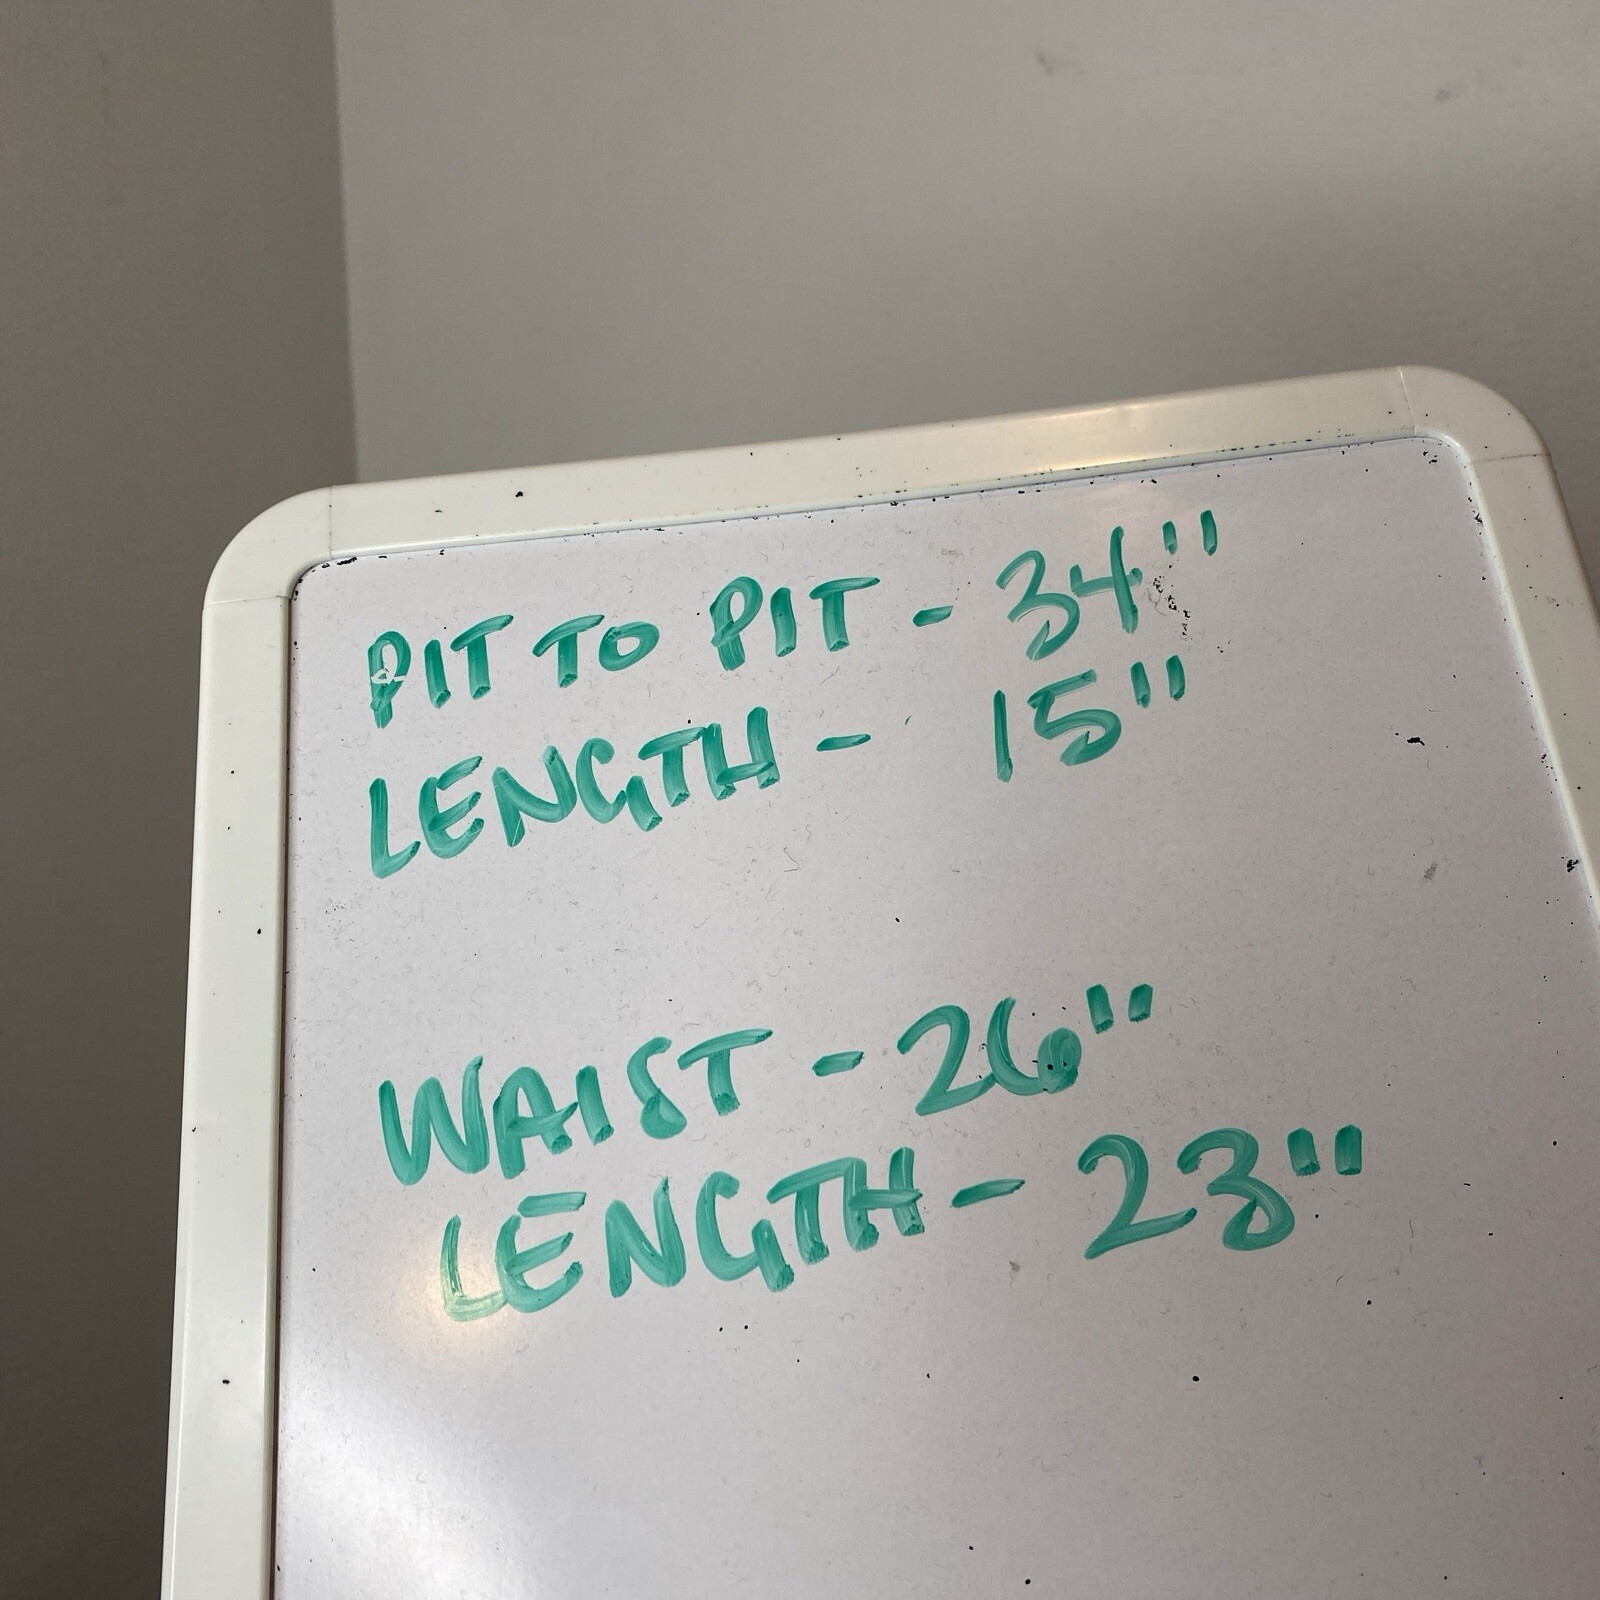 PIT TO PIT - 34"
LENGTH - 15"
WAIST - 26"
LENGTH - 23"